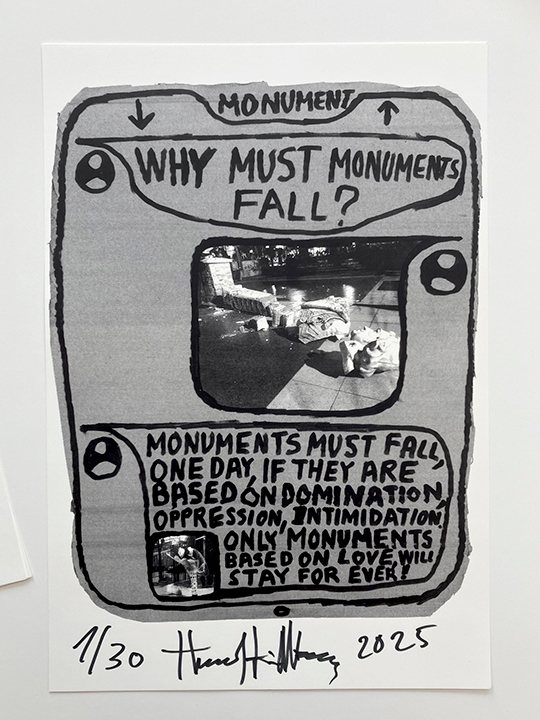 MONUMENT
WHY MUST MONUMENTS
FALL?
MONUMENTS MUST FALL,
ONE DAY, IF THEY ARE
BASED ON DOMINATION,
OPPRESSION, INTIMIDATION!
ONLY MONUMENTS
BASED ON LOVE, WILL
STAY FOR EVER!
1/30 2025